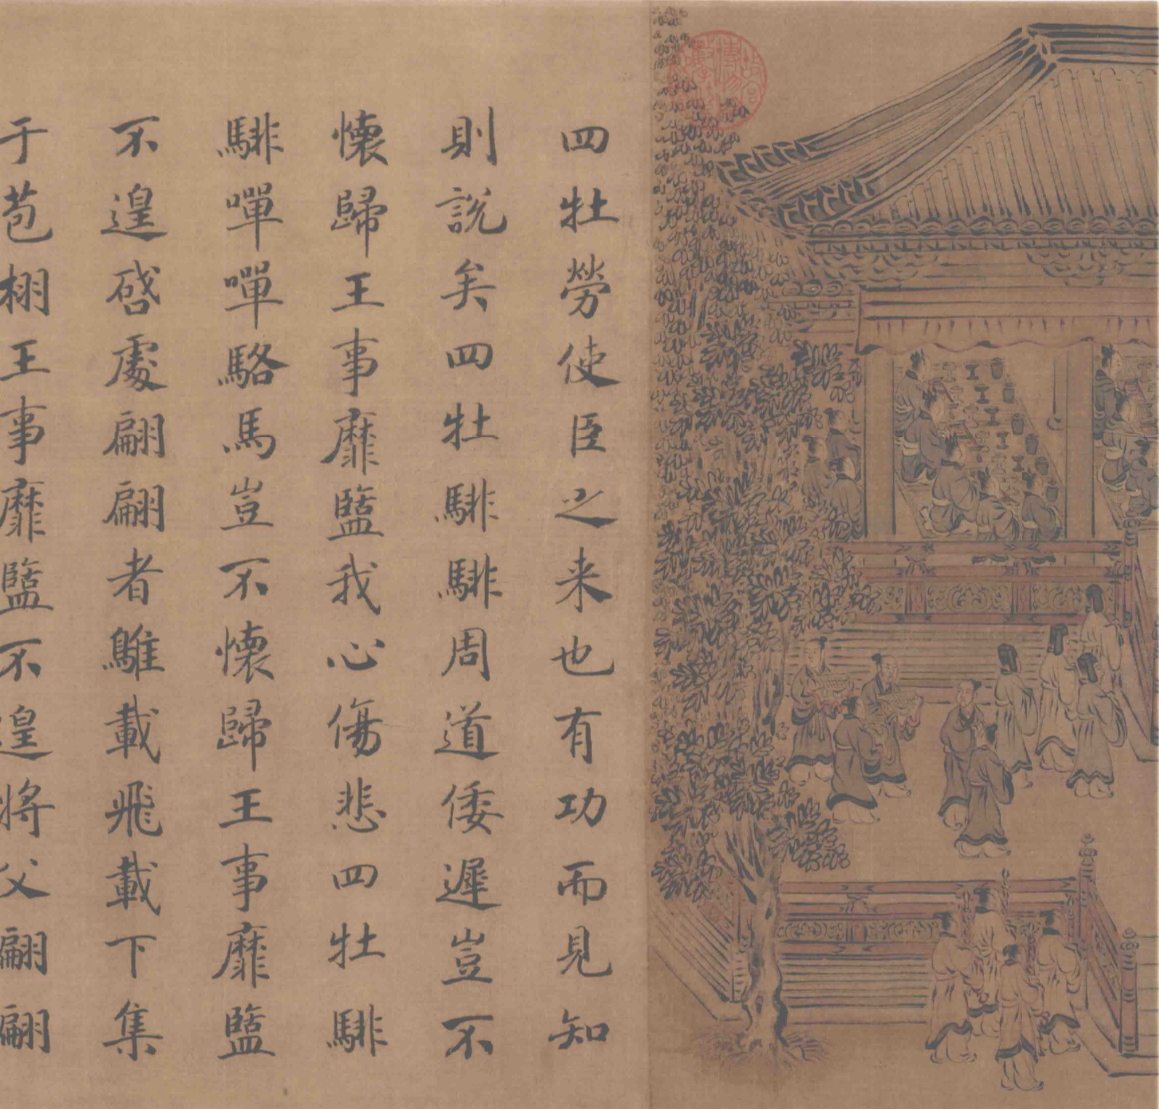 四牡勞使臣之来也有功而見知
則說矣四牡騑騑周道倭遲豈不
懷歸王事靡盬我心傷悲四牡騑
騑嘽嘽駱馬豈不懷歸王事靡盬
不遑啓處翩翩者鵻載飛載下集
于苞栩王事靡盬不遑將父翩翩